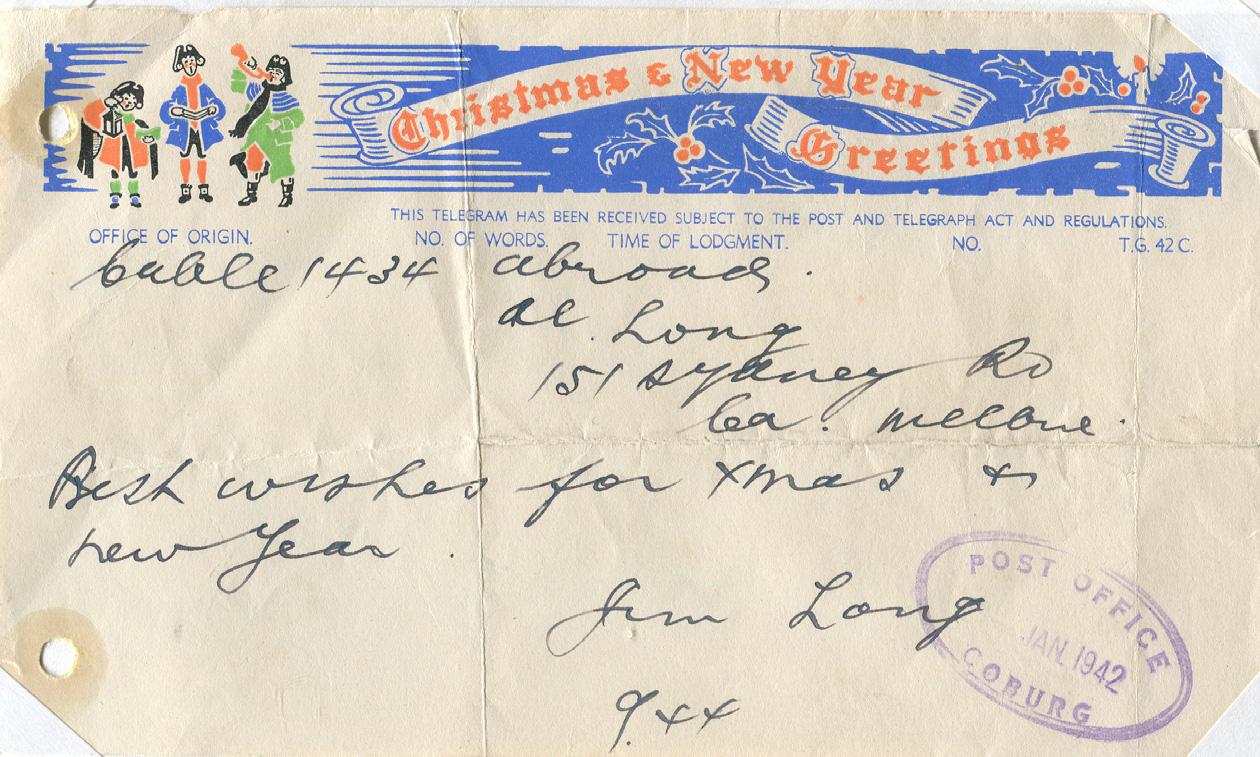 Christmas & New Year
Greetings
THIS TELEGRAM HAS BEEN RECEIVED SUBJECT TO THE POST AND TELEGRAPH ACT AND REGULATIONS.
OFFICE OF ORIGIN. NO. OF WORDS. TIME OF LODGMENT. NO. T.G. 42 C.
Cable 1434 abroad.
Long
151 Sydney Rd
Melbne.
Best wishes for Xmas &
New Year.
Jim Long
POST OFFICE
JAN. 1942
COBURG